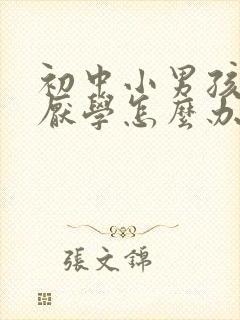 初中小男孩
厭學怎麼办
張文錦